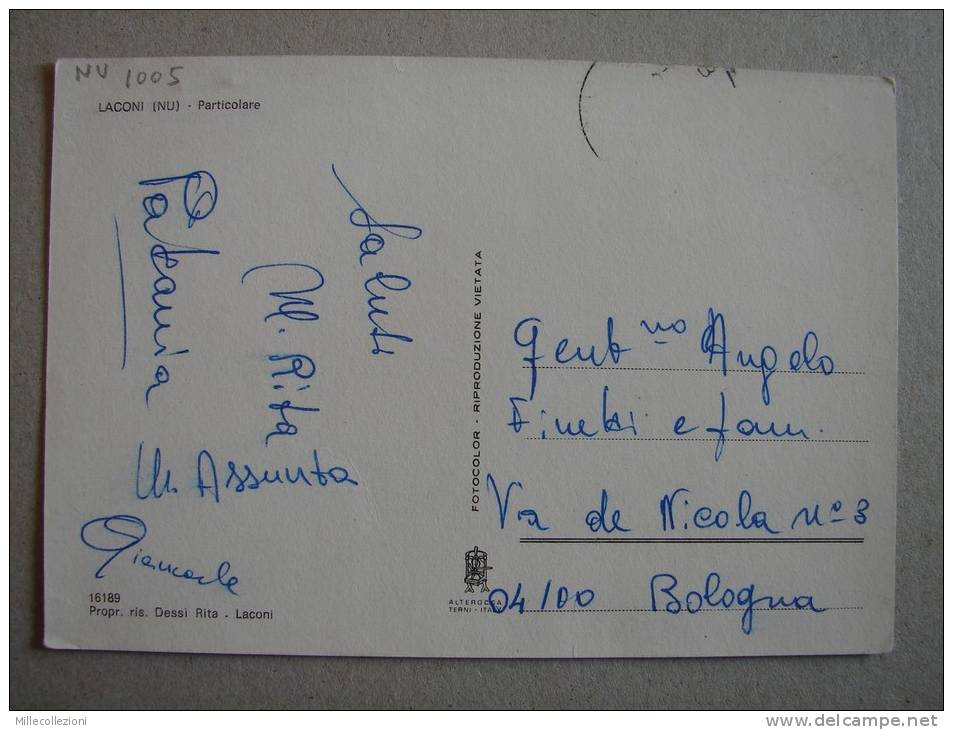 NU 1005
LACONI (NU) - Particolare
Saluti
M. Rita
Patania
M. Assunta
Giancarla
16189
Propr. ris. Dessì Rita - Laconi
FOTOCOLOR - RIPRODUZIONE VIETATA
ALTEROCCA
TERNI - ITALY
Gent.mo Angelo
Finetti e fam.
Via de Nicola n° 3
04100 Bologna
Millecollezioni
www.delcampe.net